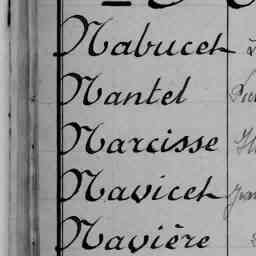 Nabucet
Nantel
Narcisse
Navicet
Navière